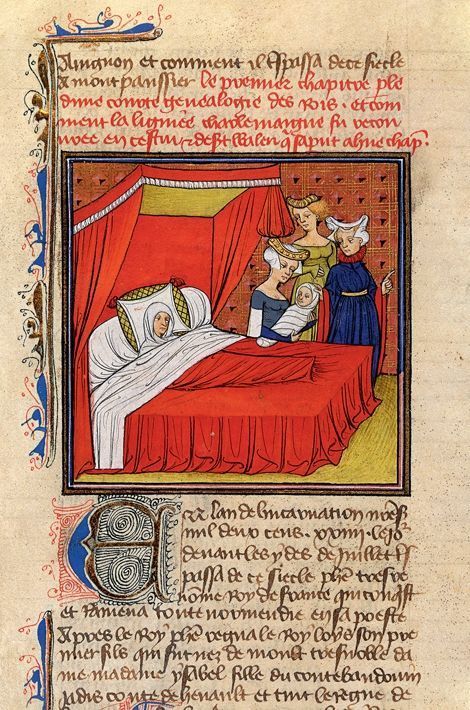 Avignon et comment il trespassa de ce siecle
a mont panssier le premier chapitre ple
dune conte genealogie des Rois . et com
ment la lignee charlemaingne fu recou
uree en cestui
En lan de lincarnation nres
mil deux cens . xxiii . le io
deuant les ydes de Juillet
passa de ce siecle phe
nome Roy de france qui conqst
et Ramena toute normendie en sa poeste
Apres le Roy phe regna le Roy loys son pre
mier fils qui fu nez de moult tresnoble da
me madame ysabel fille du conte baudouin
iadis conte de henault et tint le regne de